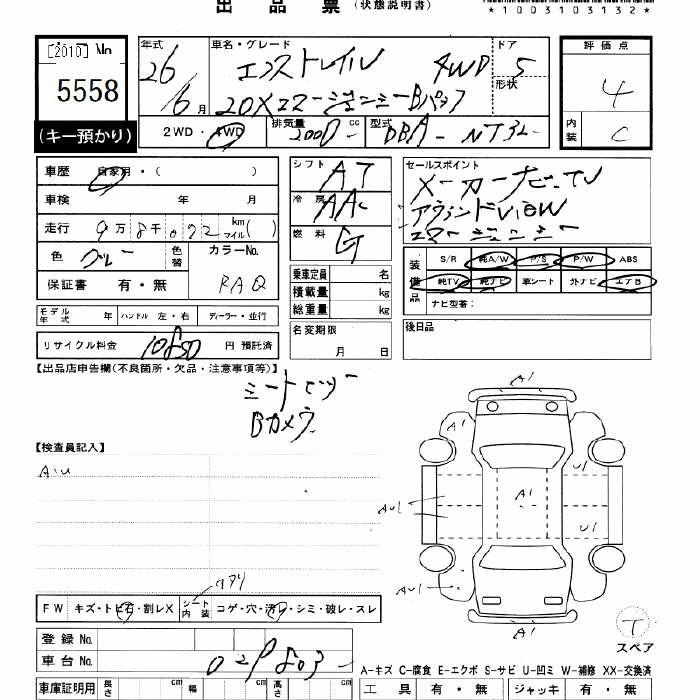 出品票 (状態説明書)
*1003103132*
[2010] No
5558
(キー預かり)
年式 26
6月
車名・グレード エクストレイル 4WD
20Xエマージェンシーブレーキ
ドア 5
形状
評価点 4
内装 C
2WD・4WD
排気量 2000 cc
型式 DBA-NT32
車歴 自家用・( )
車検 年 月
走行 9万8千072 km マイル( )
色 グレー 色替
カラーNo. RAQ
保証書 有・無
シフト AT
冷房 AAC
燃料 G
乗車定員 名
積載量 kg
総重量 kg
名変期限
月 日
セールスポイント
メーカーナビ・TV
アラウンドVIEW
エマージェンシー
装備品
S/R 純A/W P/S P/W ABS
純TV 純ナビ 革シート 外ナビ エアB
ナビ型番:
後日品
モデル年式 年 ハンドル 左・右 ディーラー・並行
リサイクル料金 10850 円 預託済
【出品店申告欄(不良箇所・欠品・注意事項等)】
シートヒーター
Bカメラ
【検査員記入】
A・U
FW キズ・トビ石・割レX シート内装 コゲ・穴・汚レ・シミ・破レ・スレ
登録No.
車台No. 029803
車庫証明用 長さ cm 幅 cm 高さ cm
A1
A1
U1
AU1
A1
U1
AU1
A1
T
スペア
A-キズ C-腐食 E-エクボ S-サビ U-凹ミ W-補修 XX-交換済
工具 有・無 ジャッキ 有・無